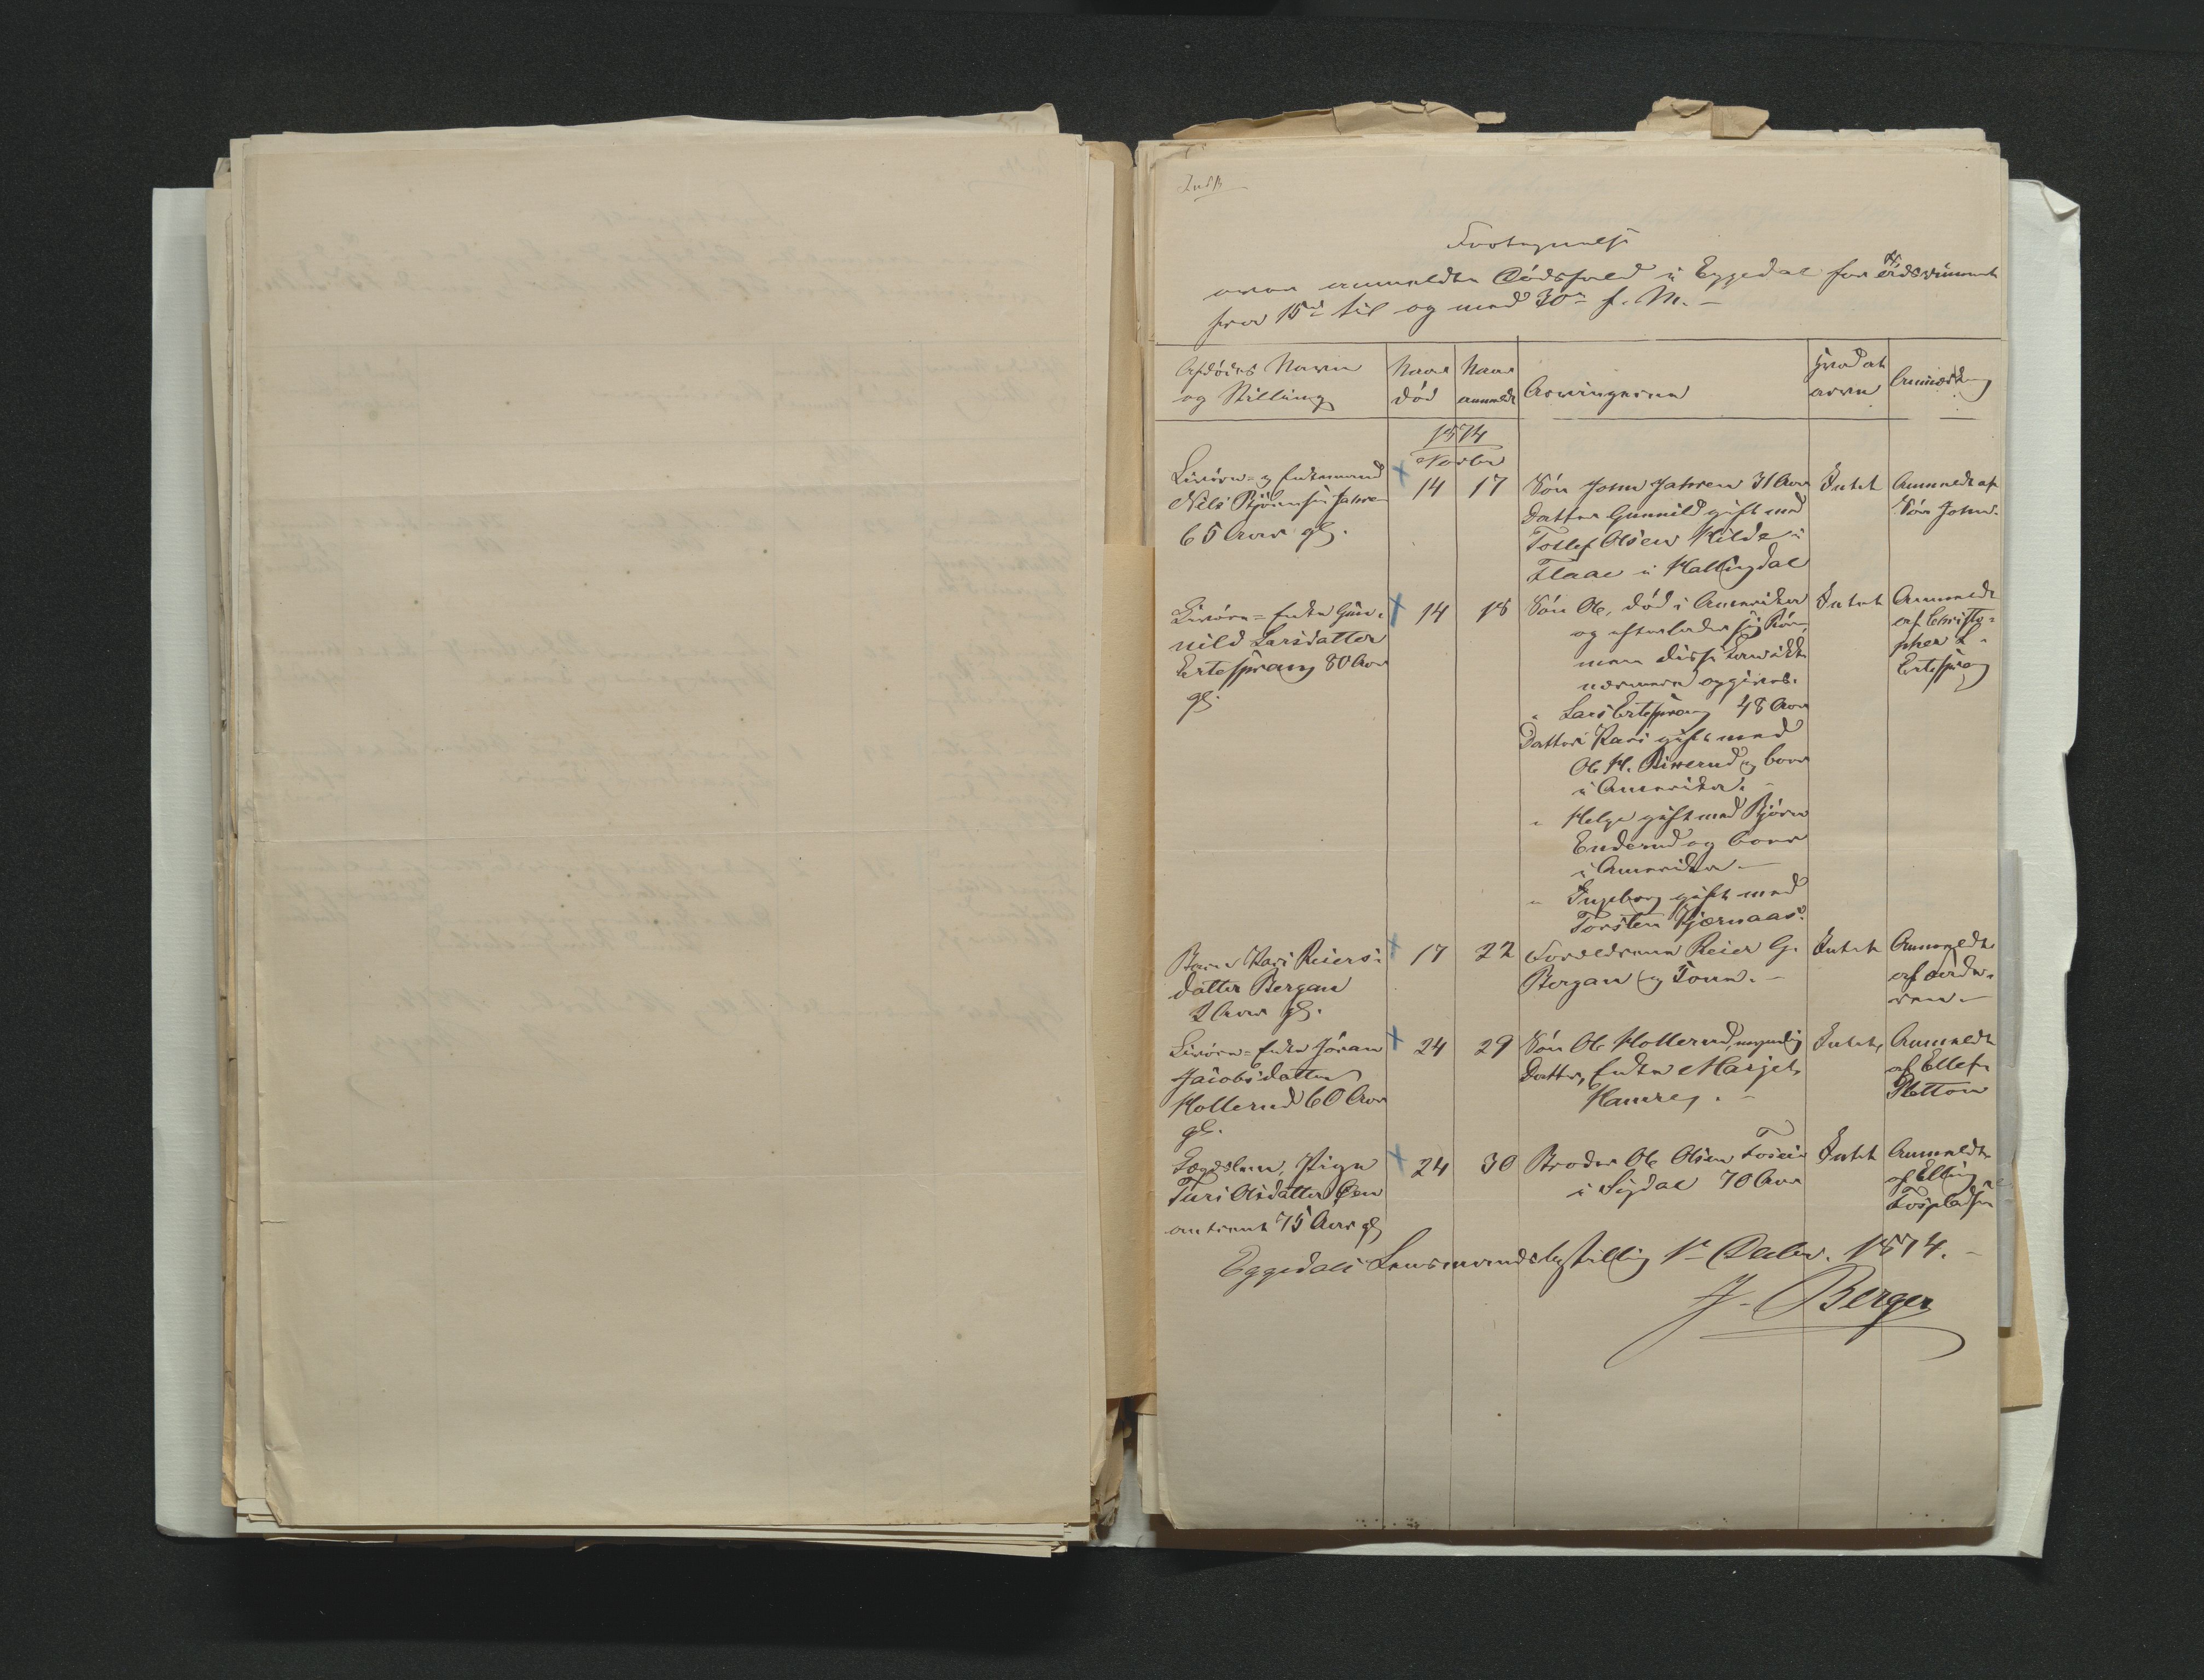 Indk
Fortegnelse
over anmeldte Dødsfald i Eggedal for Tidsrummet
fra 15de til og med 30te f. M. –
Afdødes Navn
og Stilling
Naar
død
Naar
anmeldt
Arvingerne
Hvad at
arve
Anmærkng
1874
Novbr
Livøre- og Enkemand
Nils Bjørnsen Jahren
65 Aar gl.
14
17
Søn John Jahren 31 Aar
Datter Gunnild gift med
Tollef Olsen Kilde i
Flaae i Hallingdal
Intet
Anmeldt af
Søn John.
Livøre- Enke Gun-
nild Larsdatter
Ertesprang 80 Aar
gl.
14
18
Søn Ole, død i Amerika
og efterlader sig Børn,
men disse kan ikke
nærmere opgives.
" Lars Ertesprang 48 Aar
Datter Kari gift med
Ole H. og boer
i Amerika. –
" Helge gift med Bjørn
Enderud og boer
i Amerika –
" Ingeborg gift med
Torsten Kjørnaas.
Intet
Anmeldt
af Christo-
pher L.
Ertesprang
Barn Kari Reiers-
datter Bergan
2 Aar gl.
17
22
Forældrene Reier G.
Bergan og Kone. –
Intet
Anmeldt
af Fade-
ren –
Livøre- Enke Jøran
Jacobsdatter
Hollerud 60 Aar
gl.
24
29
Søn Ole Hollerud, myndig
Datter, Enke Margit
Hamre, . –
Intet,
Anmeldt
af Ellef
Pletten
Lægdslem, Pige
Turi Olsdatter
omtrent 75 Aar gl
24
30
Broder Ole Olsen
i Sigdal 70 Aar
Intet
Anmeldt
af Elling
Eggedals Lensmandsbestilling 1te Decbr. 1874. –
J. Berger